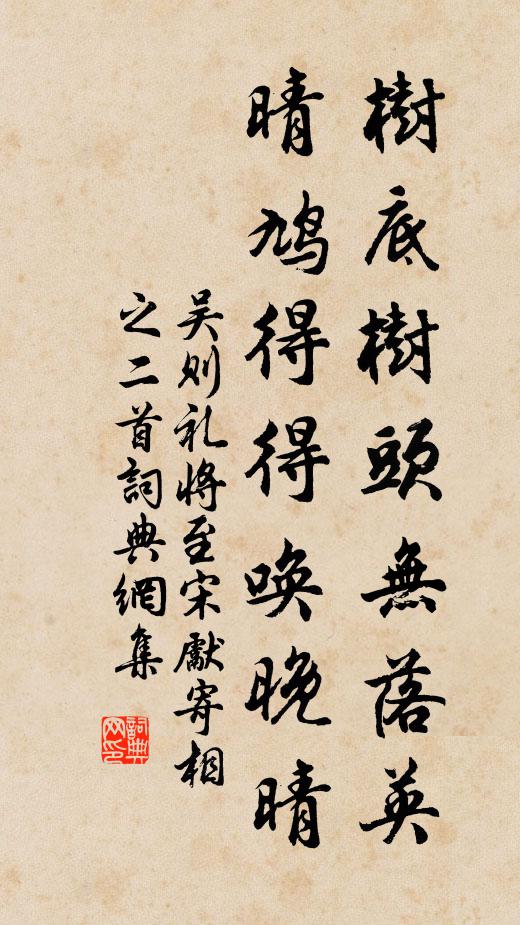 樹底樹頭無落英
晴鳩得得喚晚晴
吴则礼將至宋獻寄相
之二首詞典網集
詞典網印